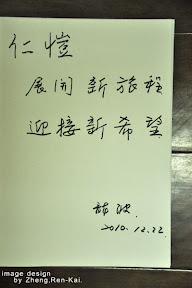 仁愷
展開新旅程
迎接新希望
2010.12.22.
image design
by Zheng,Ren-Kai.